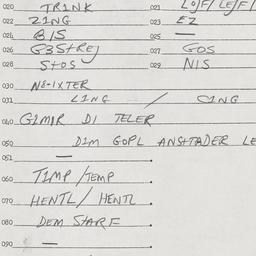 020 TRINK 021 LOJF/LEJF/
022 ZING 023 EZ
024 BIS 025 —
026 G3STREJ 027 GOS
028 STOS 029 NIS
030 N8-IXTER
031 LING / CING
040 GIMIR DI TELER
050 DIM GOPL ANSHTADER LE
051 —
060 TIMP/TEMP
070 HENTL/HENTL
080 DEM STARF
090 —